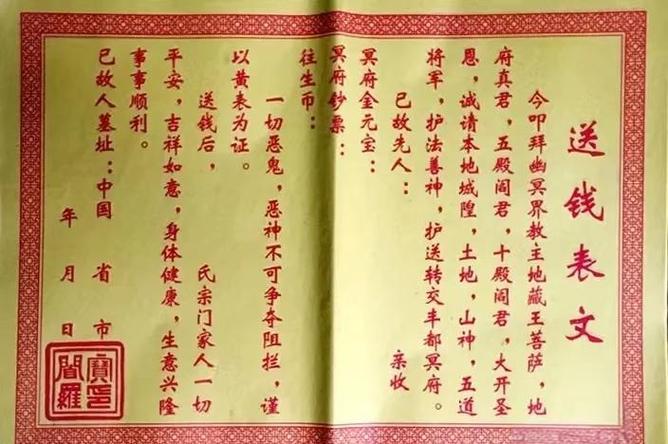 送钱表文
今叩拜幽冥界教主地藏王菩萨，地
府真君，五殿阎君，十殿阎君，大开圣
恩，诚请本地城隍，土地，山神，五道
将军，护法善神，护送转交丰都冥府。
已故先人： 亲收
冥府金元宝：
冥府钞票：
往生币：
一切恶鬼，恶神不可争夺阻拦，谨
以黄表为证。
送钱后， 氏宗门家人一切
平安，吉祥如意，身体健康，生意兴隆
事事顺利。
已故人墓址：中国 省 市
年 月 日
閻羅寶印